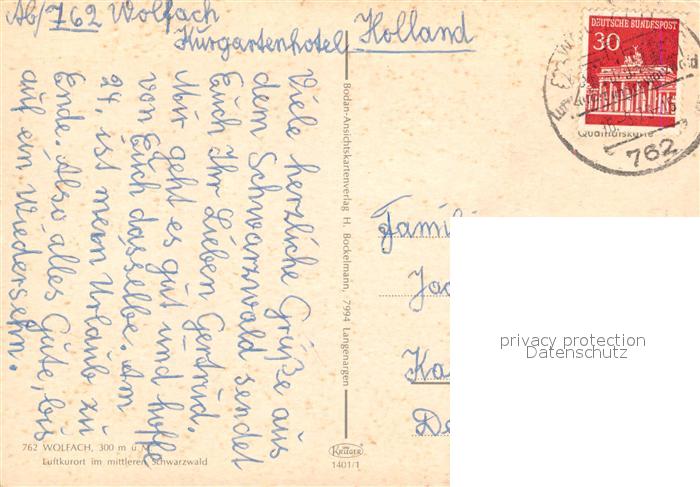 Ab/762 Wolfach
Kurgartenhotel Holland
Viele herzliche Grüße aus
dem Schwarzwald sendet
Euch Ihr Lieben Gertrud.
Mir geht es gut und hoffe
von Euch dasselbe. Am
24. ist mein Urlaub zu
Ende. Also alles Gute, bis
auf ein Wiedersehn.
762 WOLFACH, 300 m ü. M.
Luftkurort im mittleren Schwarzwald
Bodan-Ansichtskartenverlag H. Bockelmann, 7994 Langenargen
KRÜGER
1401/1
DEUTSCHE BUNDESPOST
30
Qualitätskarte
762
Famili
privacy protection
Datenschutz